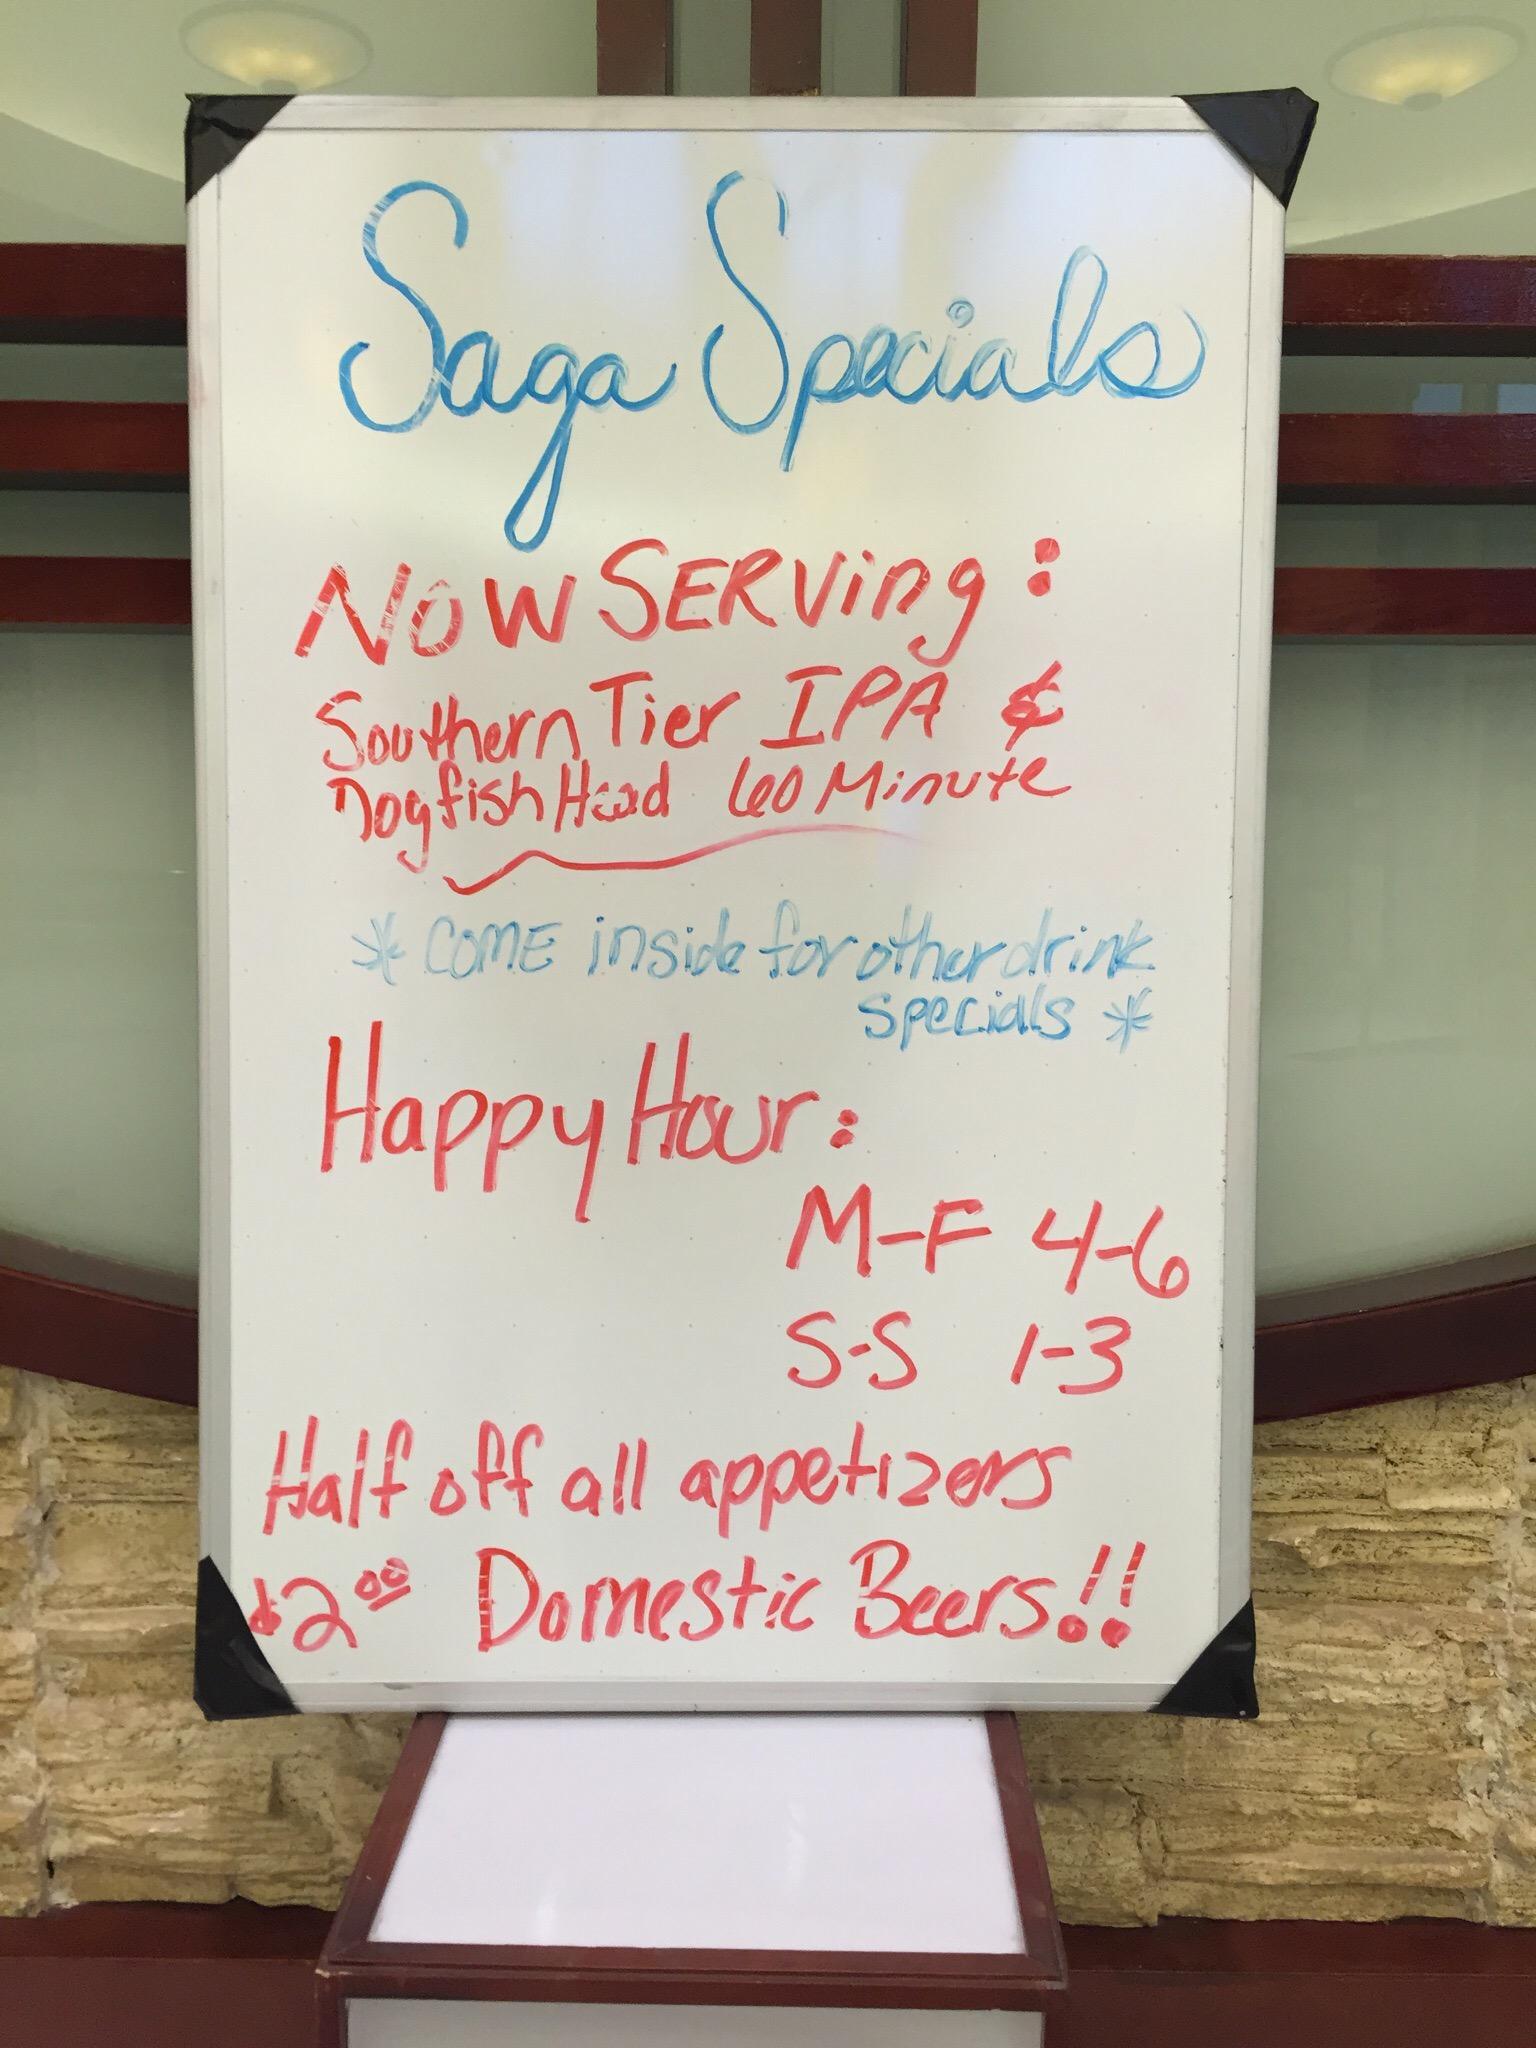 Saga Specials
NOW SERVing:
Southern Tier IPA &
Dogfish Head 60 Minute
* COME inside for other drink
specials *
Happy Hour:
M-F 4-6
S-S 1-3
Half off all appetizers
$2.00 Domestic Beers!!